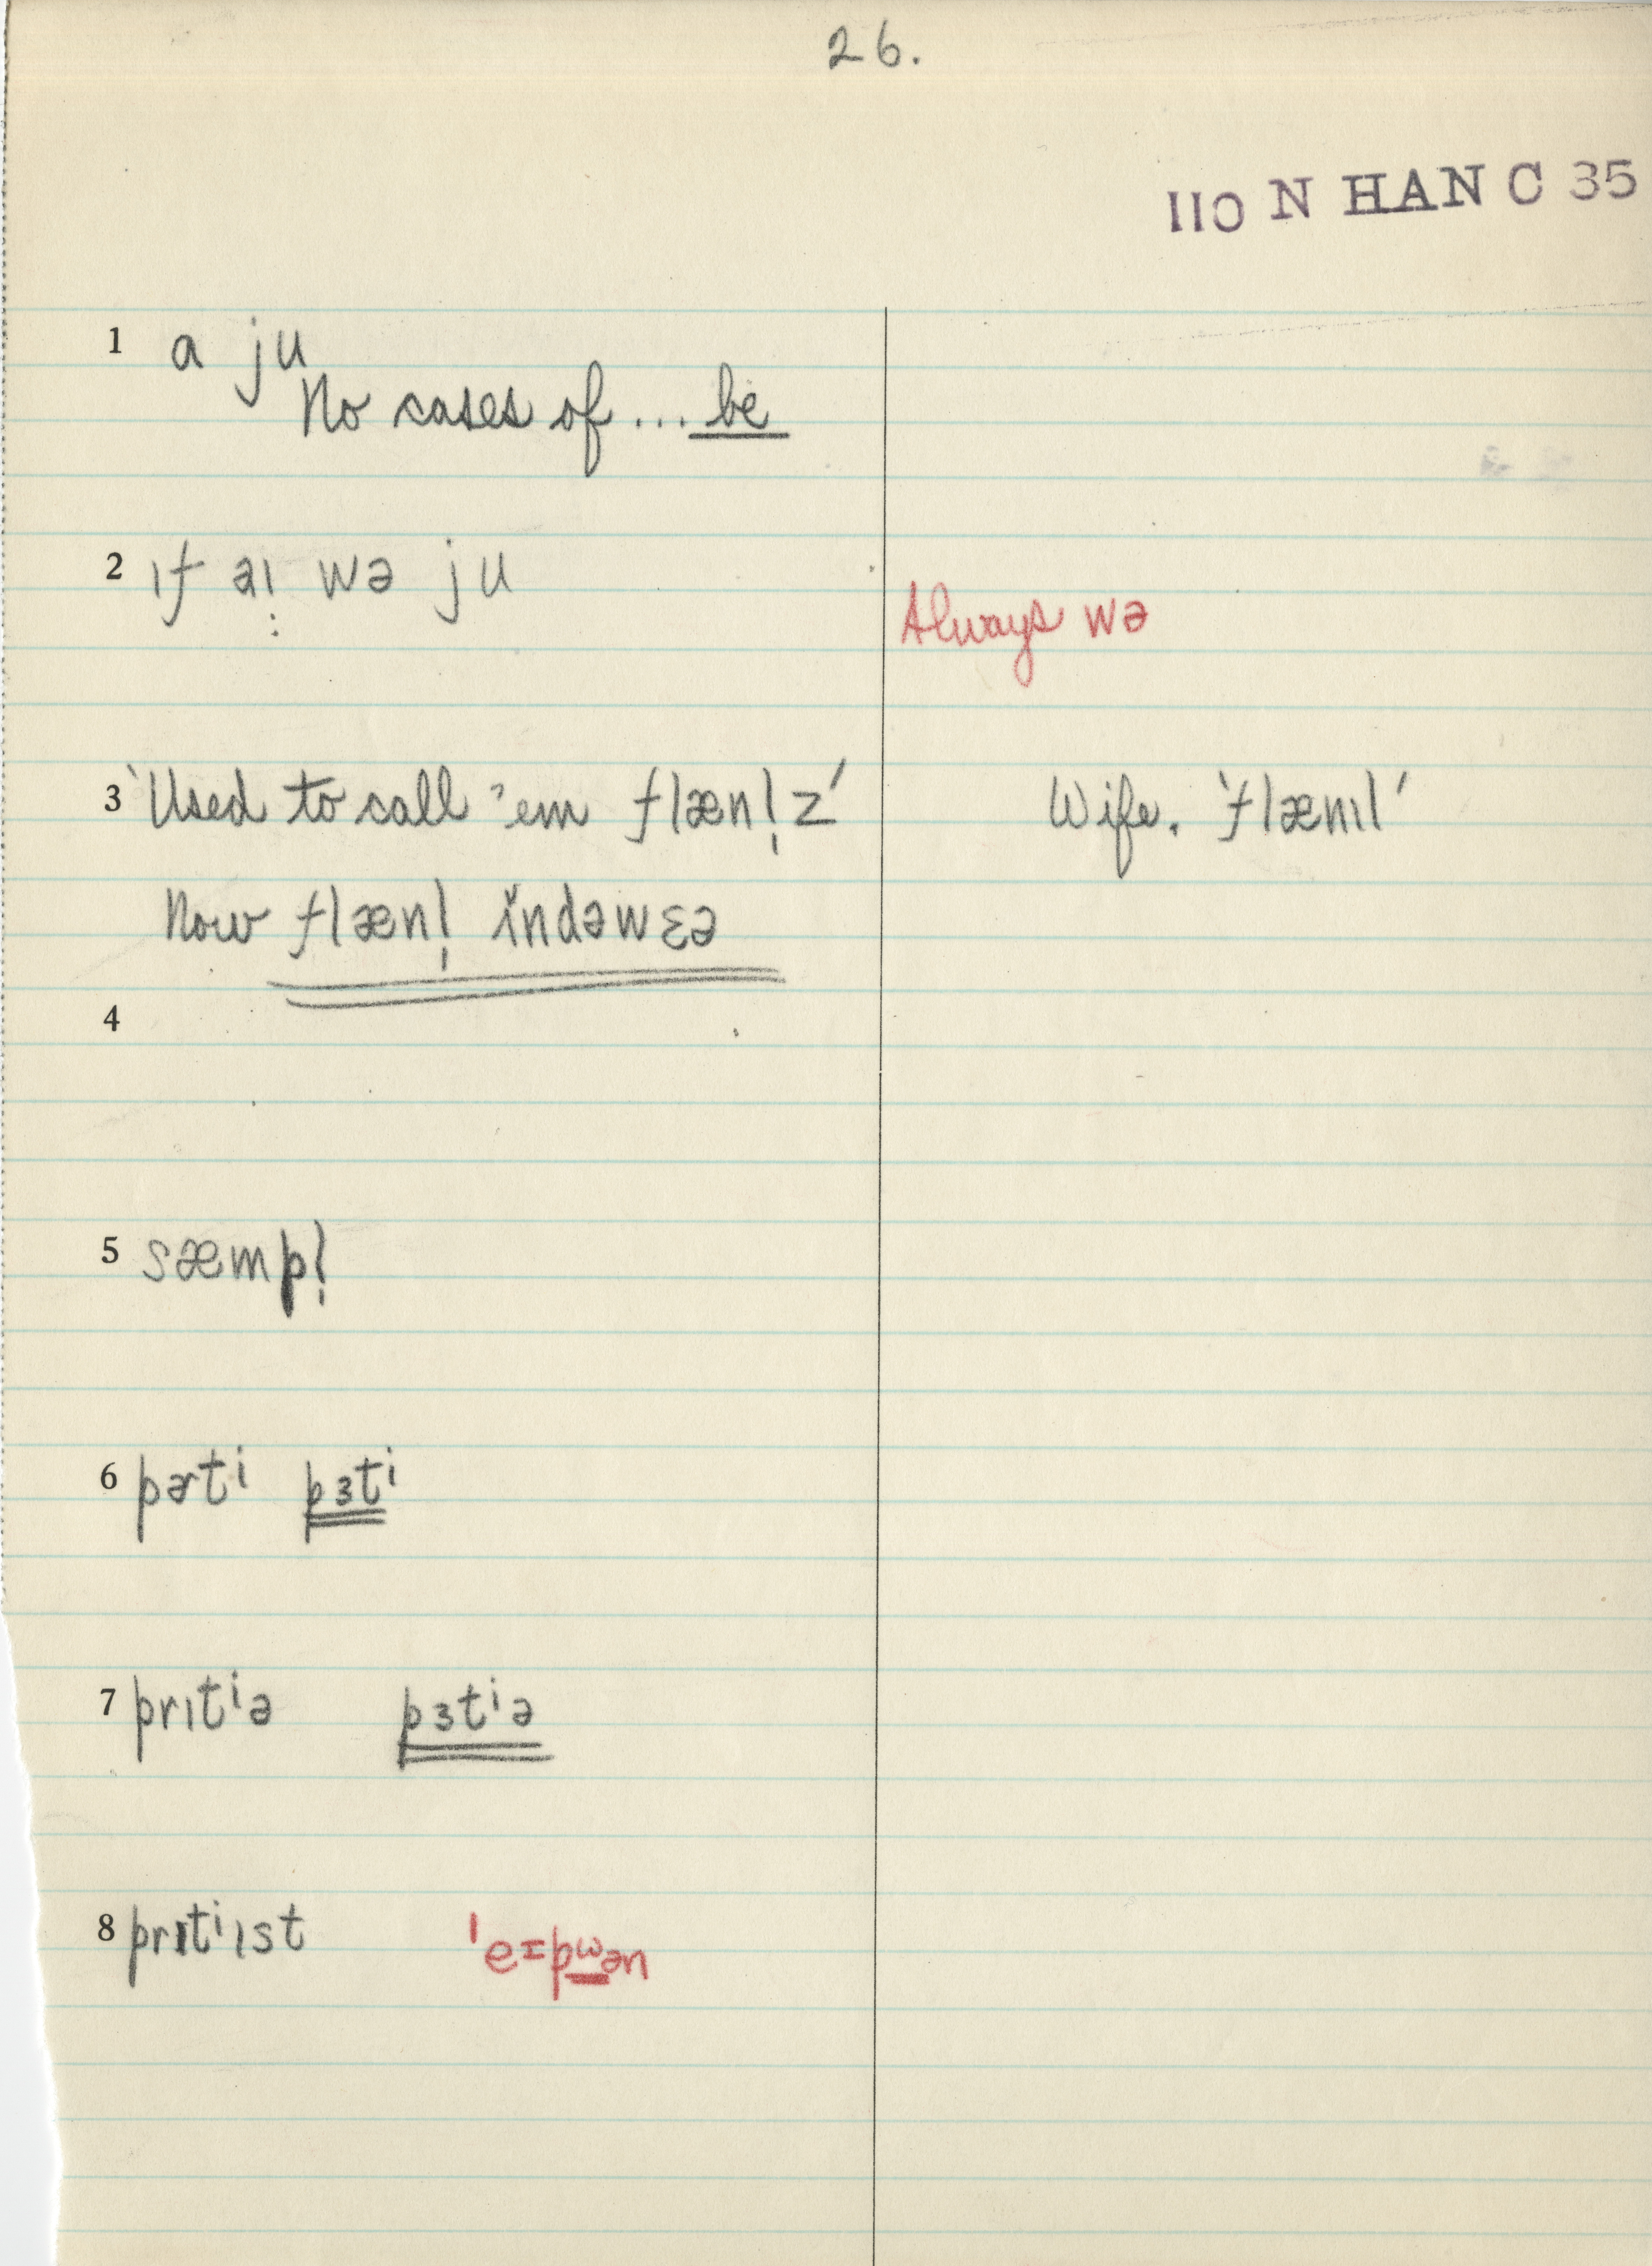 26.
110 N HAN C 35
1 a ju
No cases of ... be
2 ɪf aɪ wə ju
Always wə
3 'Used to call 'em flænl̩z' Wife. 'flænɪl'
Now flænl̩ ĭndəwɛə
4
5 sæmpl̩
6 pərtⁱ pɜtⁱ
7 prɪtⁱə pɜtⁱə
8 prɪtⁱɪst ˈeɪpwən